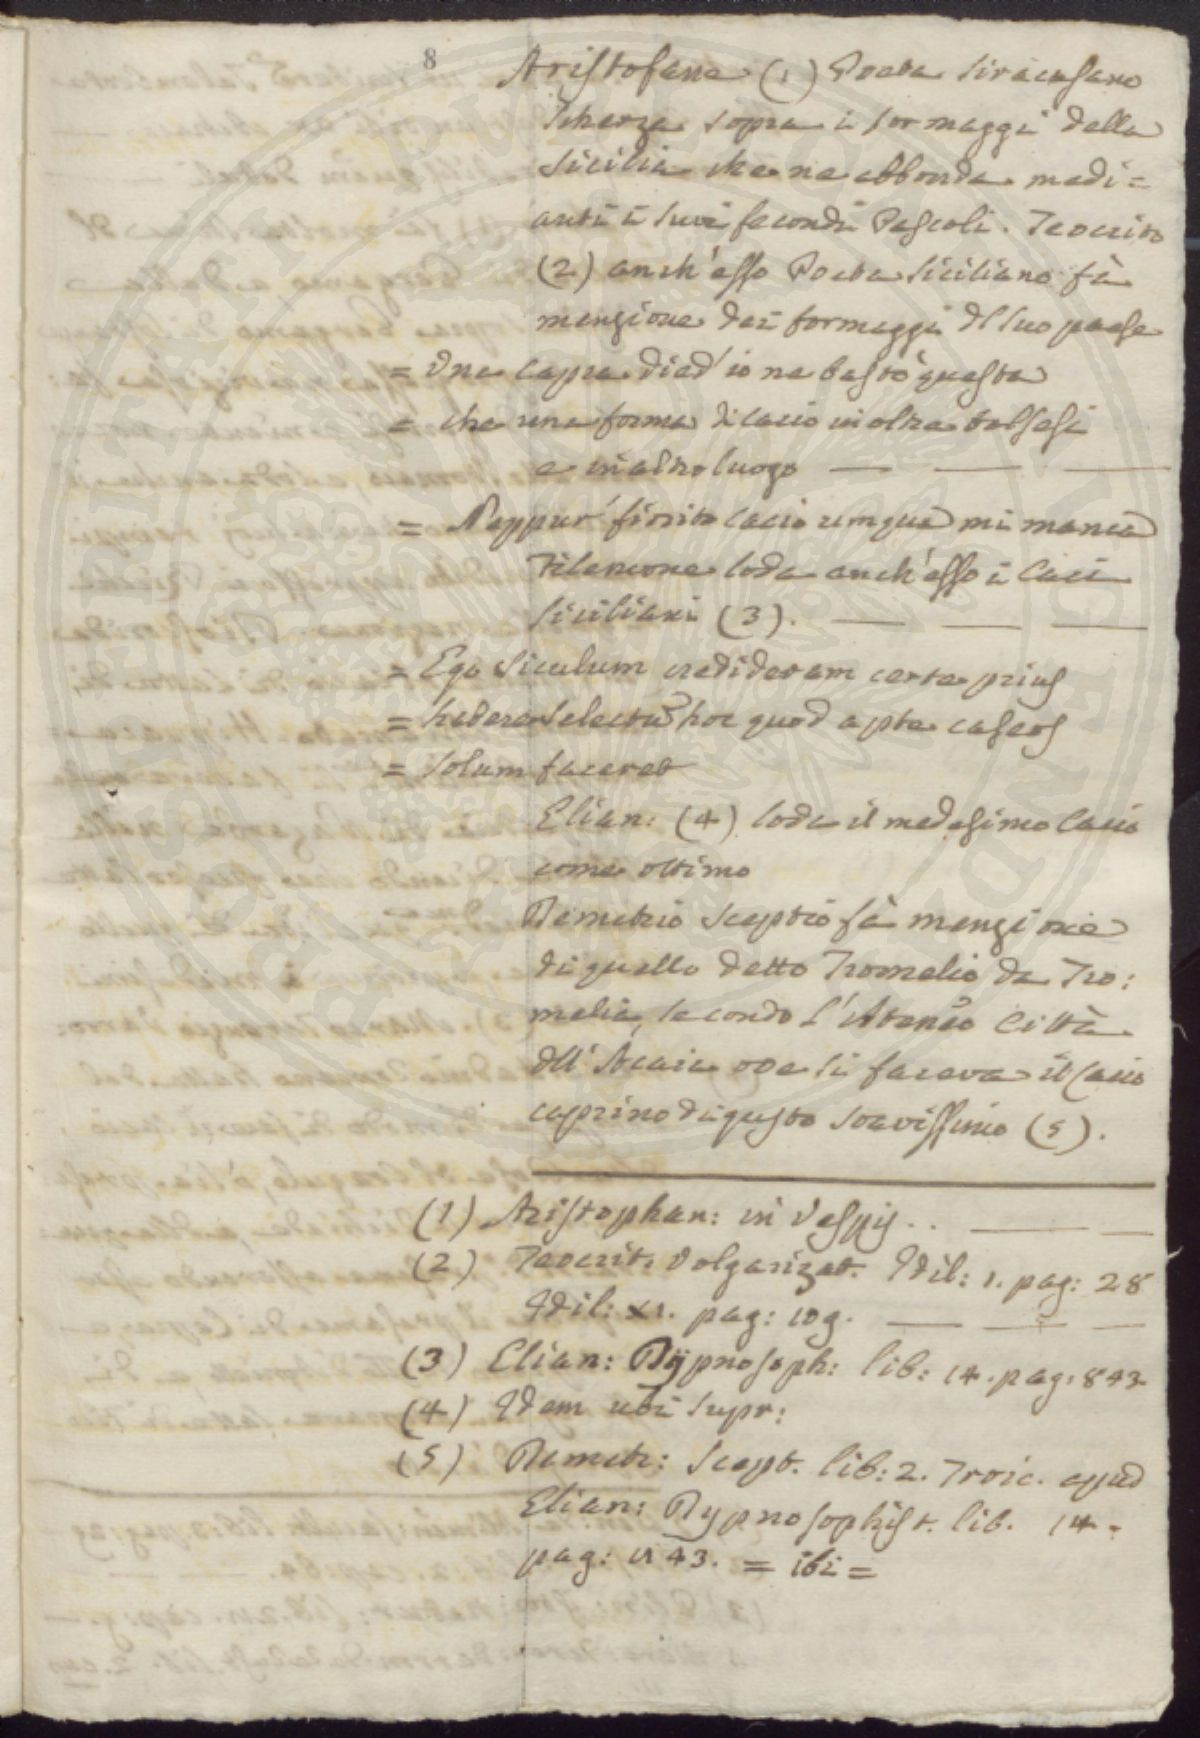 8
Aristofane (1) Poeta Siracusano
Scherza sopra i formaggi della
Sicilia che ne abbonda medi=
anti i suoi fecondi Pascoli. Teocrito
(2) anch'esso Poeta Siciliano fà
menzione dei formaggi dl suo paese
= Una capra died' io ne bastò questa
= che una forma di cacio inoltre
e in altro luogo
= Neppur' fiorito cacio unque mi manca
Filemone loda anch'esso i Caci
Siciliani (3).
= Ego Siculum credideram certe prius
= habere selectu hoc quod apte caseos
= solum faceret
Elian: (4) loda il medesimo Cacio
come ottimo
Demetrio Sceptio fà menzione
di quello detto Tromelio da Tro:
melia, secondo l'Ateneo Città
dll' Acaia ove si faceva il Cacio
caprino di gusto soavissimo (5).
(1) Aristophan: in Vespis..
(2) Teocrit. Volgarizat. Idil: 1. pag: 28
Idil: XI. pag: 109.
(3) Elian: Dypnosoph: lib: 14. pag: 843
(4) Idem ubi supr:
(5) Demetr: Scept. lib: 2. Troic. apud
Elian: Dypnosophist. lib. 14.
pag: 43. = ibi =